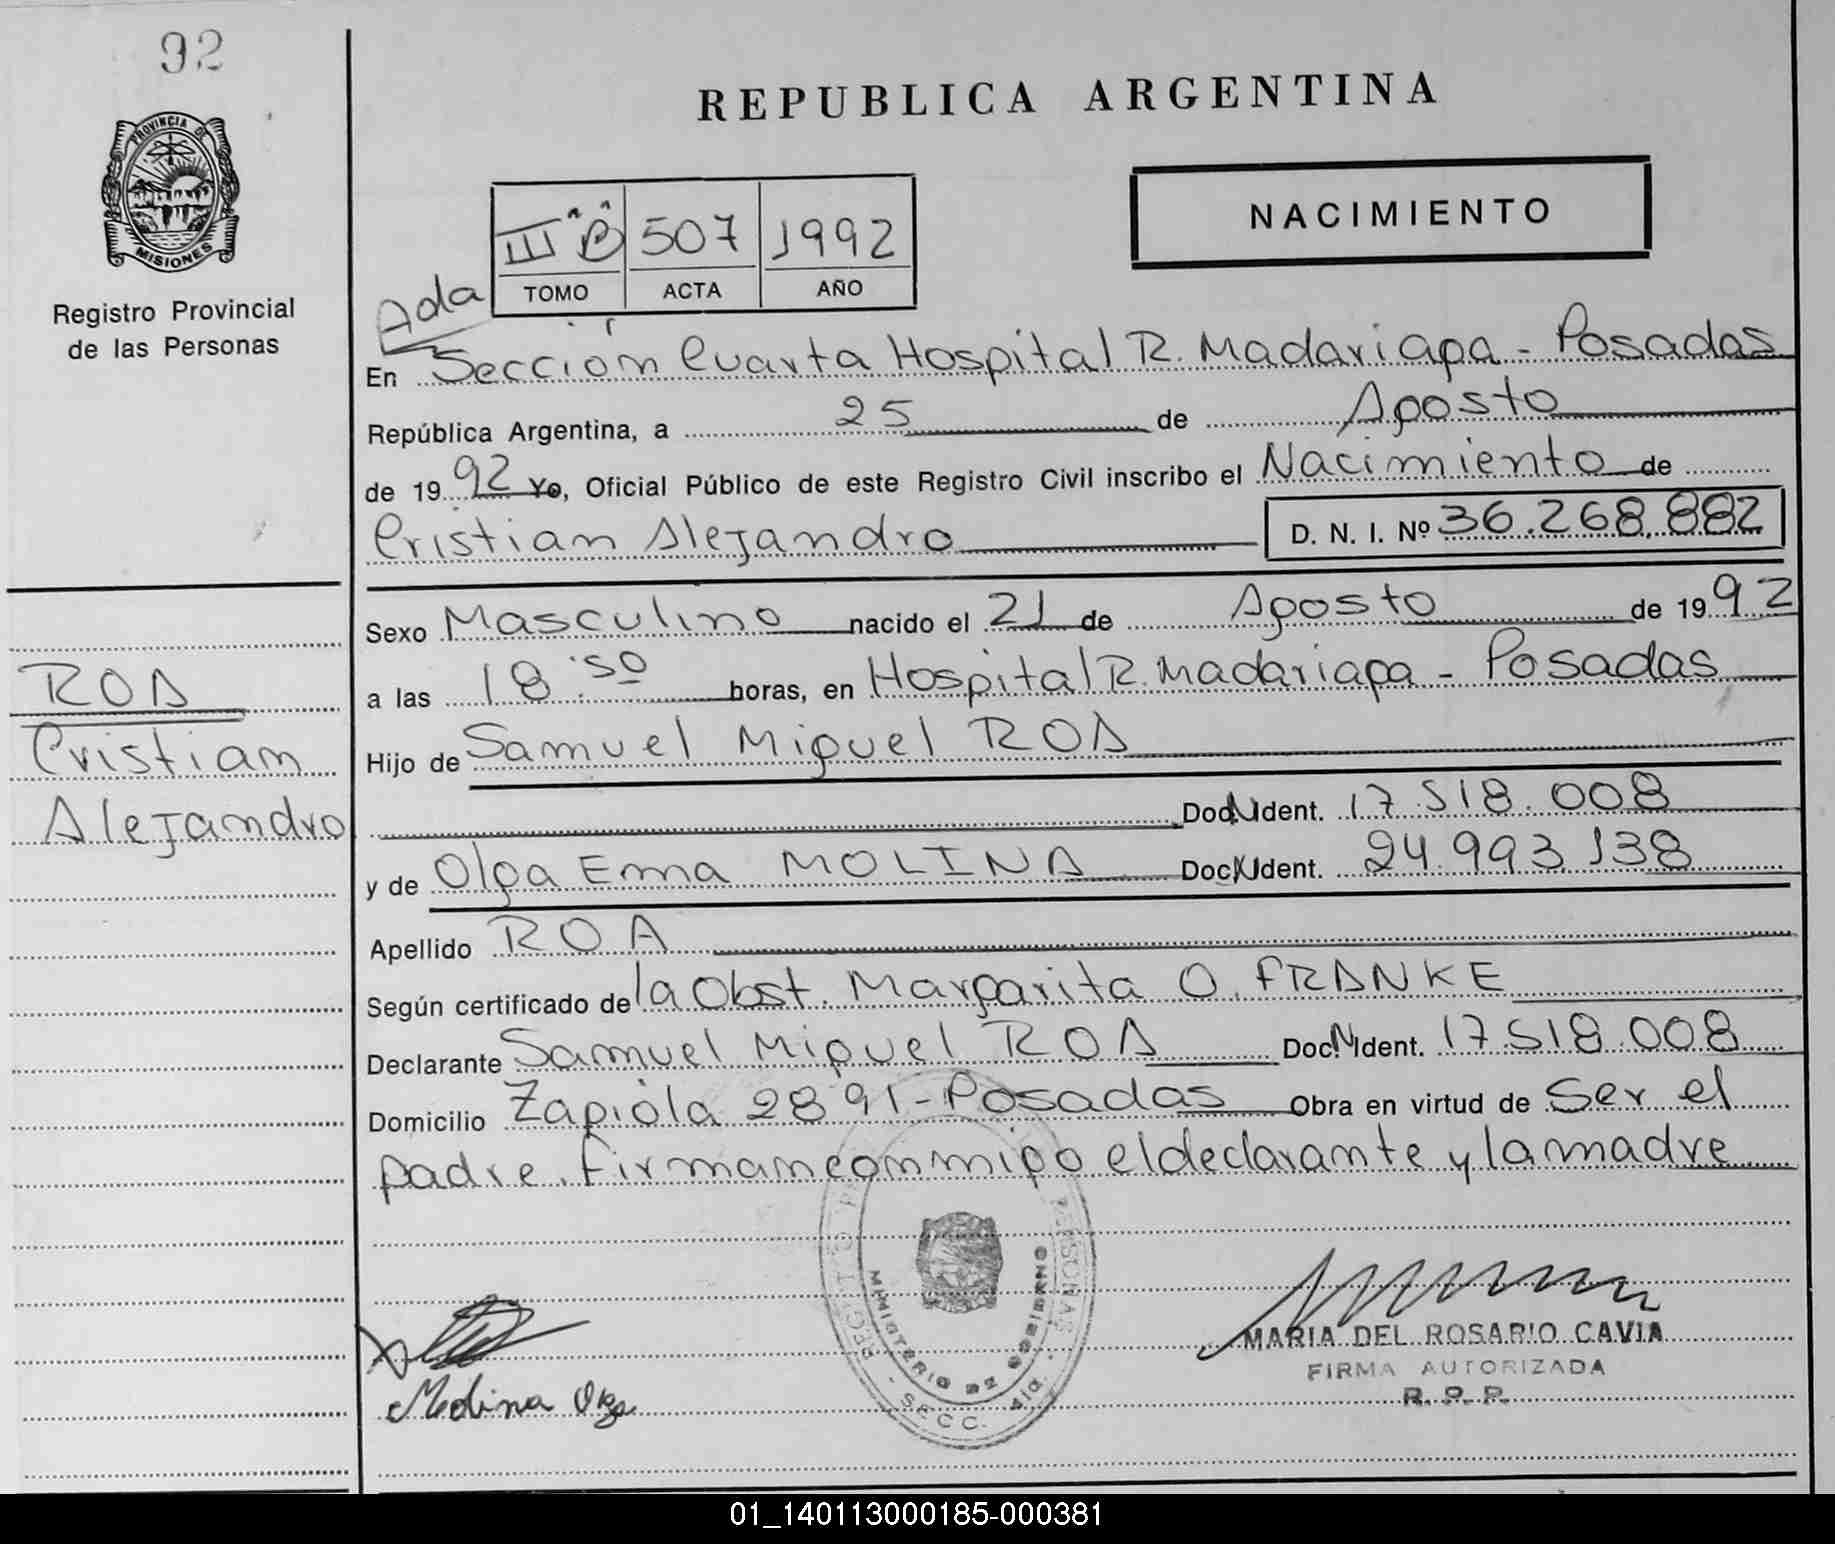 92
PROVINCIA DE
MISIONES
Registro Provincial
de las Personas
ROA
Cristian
Alejandro
REPUBLICA ARGENTINA
NACIMIENTO
III "B" 507 1992
TOMO ACTA AÑO
Ada
En Sección Cuarta Hospital R. Madariaga - Posadas
República Argentina, a 25 de Agosto
de 1992 Yo, Oficial Público de este Registro Civil inscribo el Nacimiento de
Cristian Alejandro D. N. I. Nº 36.268.882
Sexo Masculino nacido el 21 de Agosto de 1992
a las 18:50 horas, en Hospital R. Madariaga - Posadas
Hijo de Samuel Miguel ROA
Doc. N Ident. 17.518.008
y de Olga Ema MOLINA Doc. N Ident. 24.993.138
Apellido ROA
Según certificado de la Obst. Margarita O. FRANKE
Declarante Samuel Miguel ROA Doc. N Ident. 17.518.008
Domicilio Zapiola 2891 - Posadas Obra en virtud de Ser el
padre. Firman conmigo el declarante y la madre
MINISTERIO DE GOBIERNO
PERSONAS
SECC. 4ta.
Medina Olga
MARIA DEL ROSARIO CAVIA
FIRMA AUTORIZADA
R. P. P.
01_140113000185-000381